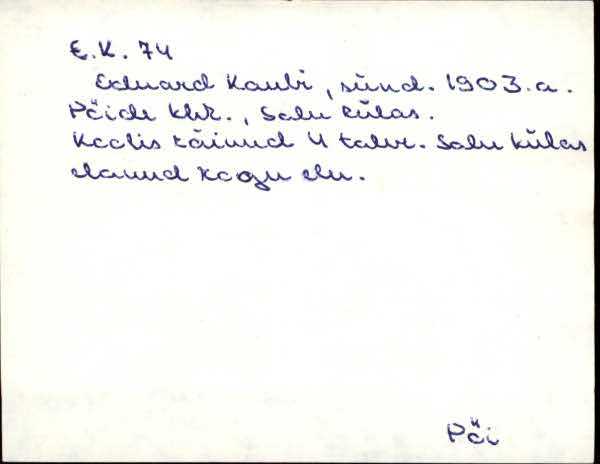 E.K. 74
Eduard Kaubi, sünd. 1903. a.
Pöide khk., Salu külas.
Koolis käinud 4 talve. Salu külas
elanud kogu elu.
Pöi